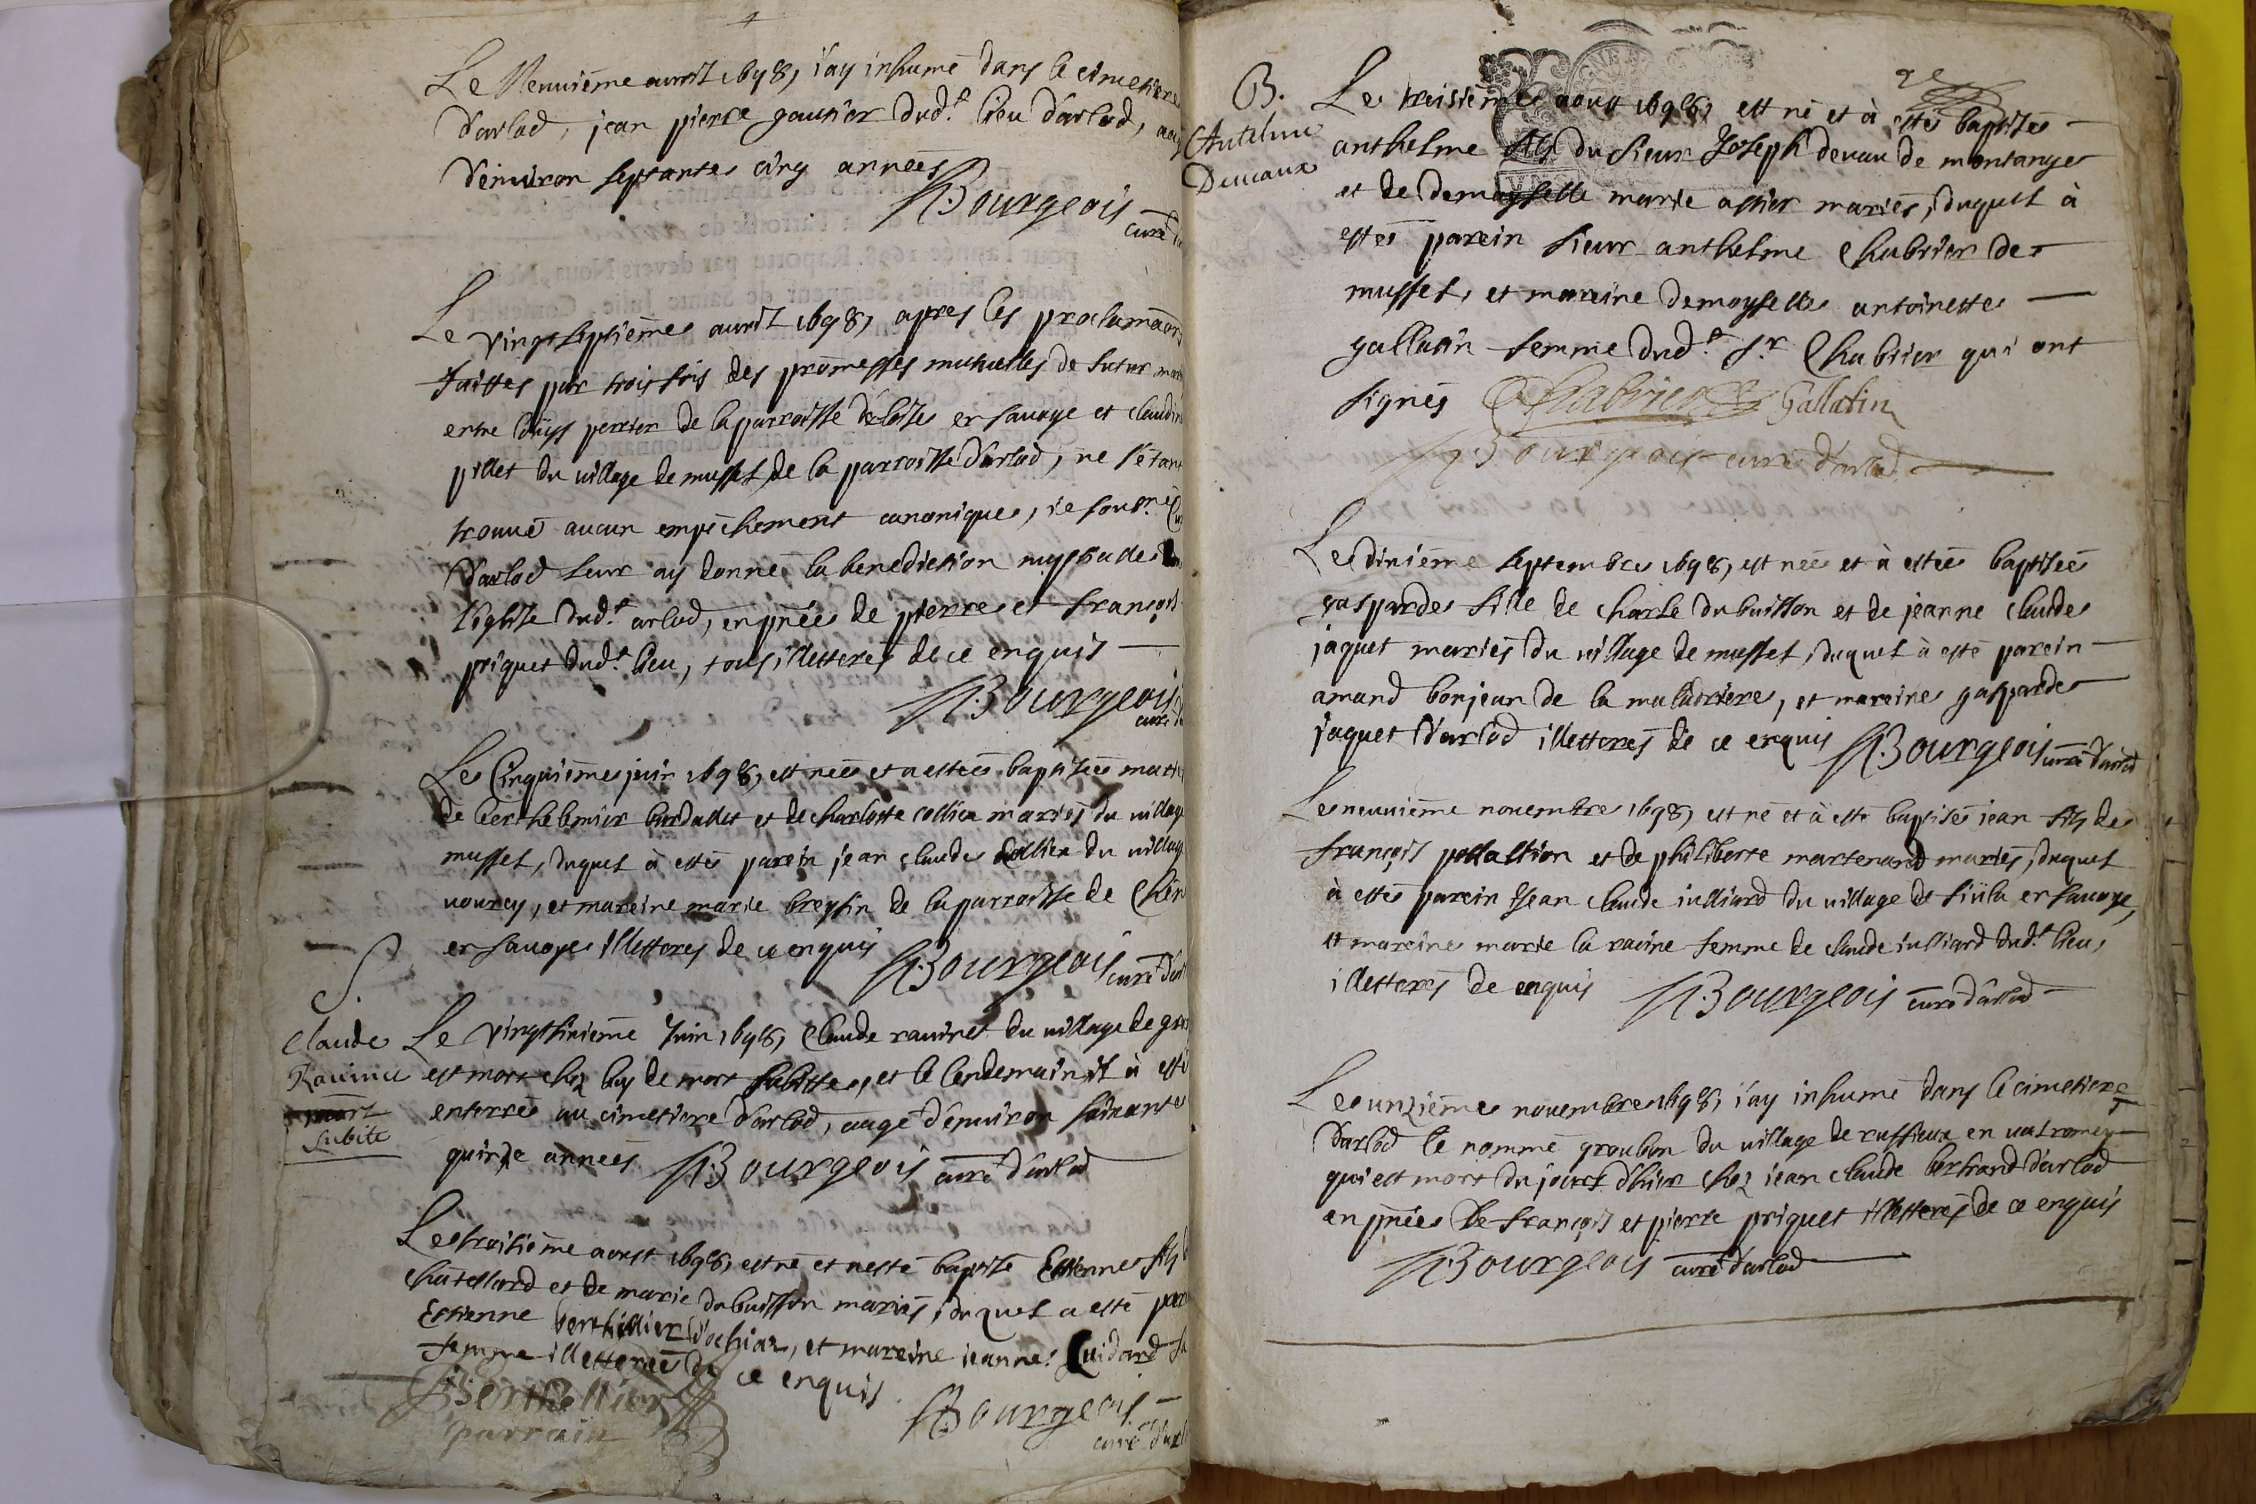 Le Neuuième auvril 1698, i'ay inhumé dans le cimetiere
d'arlod, jean pierre gautier dud.t lieu d'arlod, aag
d'enuiron septante cinq années
Bourgeois
curé
Le vingtseptième auvril 1698, apres les proclamaõns
faittes par trois fois des promesses mutuelles de futur mar
entre Louys perrier de la parroisse d'eloise en sauoye et claudin
pillet du village de mussel de la parroisse d'arlod, ne s'étant
trouué aucun empéchement canonique, ie sous.né Cu
d'arlod leur ay donné la benediction nuptiale d
l'église dud.t arlod, en pñce de pierre et françois
priquet dud.t lieu, tous illetterés de ce enquis
Bourgeois
curé d
Le Cinquième juin 1698, est née et a estée baptisée marie
de berthelemier burdallet et de charlotte collier mariés du village
mussel, duquel à estés parein jean claude collier du village
vourey, et mareine marie breysin de la parroisse de Chên
en sauoye illetterés de ce enquis
Bourgeois curé d'arl
S.
Claude
Rauinet
mort
subite
Le vingtsixième Juin 1698, Claude rauinet du village de gr
est mort chez luy de mort subitte, et le lendemain il à esté
enterré au cimetiere d'arlod, aagé d'enuiron soixante
quinze années Bourgeois curé d'arlod
Le troisième aoust 1698, est né et a esté baptisé Estienne fils
chatellard et de marie dubuisson mariés, duquel a esté par
Estienne berthillier d'ochiaz, et mareine jeanne Cuidard sa
femme illetterée de ce enquis
Berthellier
parrain
Bourgeois
curé d'arl
2e
B.
Antelme
Deuaux
Le troisième aoust 1698, est né et à estés baptisés
anthelme fils du sieur Joseph deuau de montange
et de demoyselle marie assier mariés, duquel à
estés parein sieur anthelme Chabrier de
mussel, et mareine demoyselle antoinette
gallatin femme dud.t s.r Chabrier qui ont
signés Chabrier Gallatin
Bourgeois curé d'arlod
Le dixième septembre 1698, est née et à estée baptisée
gasparde fille de charle dubuisson et de jeanne claude
jaquet mariés du village de mussel, duquel à esté parein
amand bonjean de la maladiere, et mareine gasparde
jaquet d'arlod illetterés de ce enquis Bourgeois curé d'arlod
Le neuuième nouembre 1698, est né et à esté baptisés jean fils de
françois pellaltion et de philiberte martenand mariés, duquel
à estés parein Jean claude iulliard du village de siula en sauoye,
et mareine marie la rauine femme de claude iulliard dud.t lieu,
illetterés de enquis Bourgeois curé d'arlod
Le unzième nouembre 1698, i'ay inhumé dans le cimetiere
d'arlod le nommé groubon du village de ruffieux en valromey
qui est mort du jourd d'hier chez jean claude bertrand d'arlod
en pñce de françois et pierre priquet illetterés de ce enquis
Bourgeois curé d'arlod